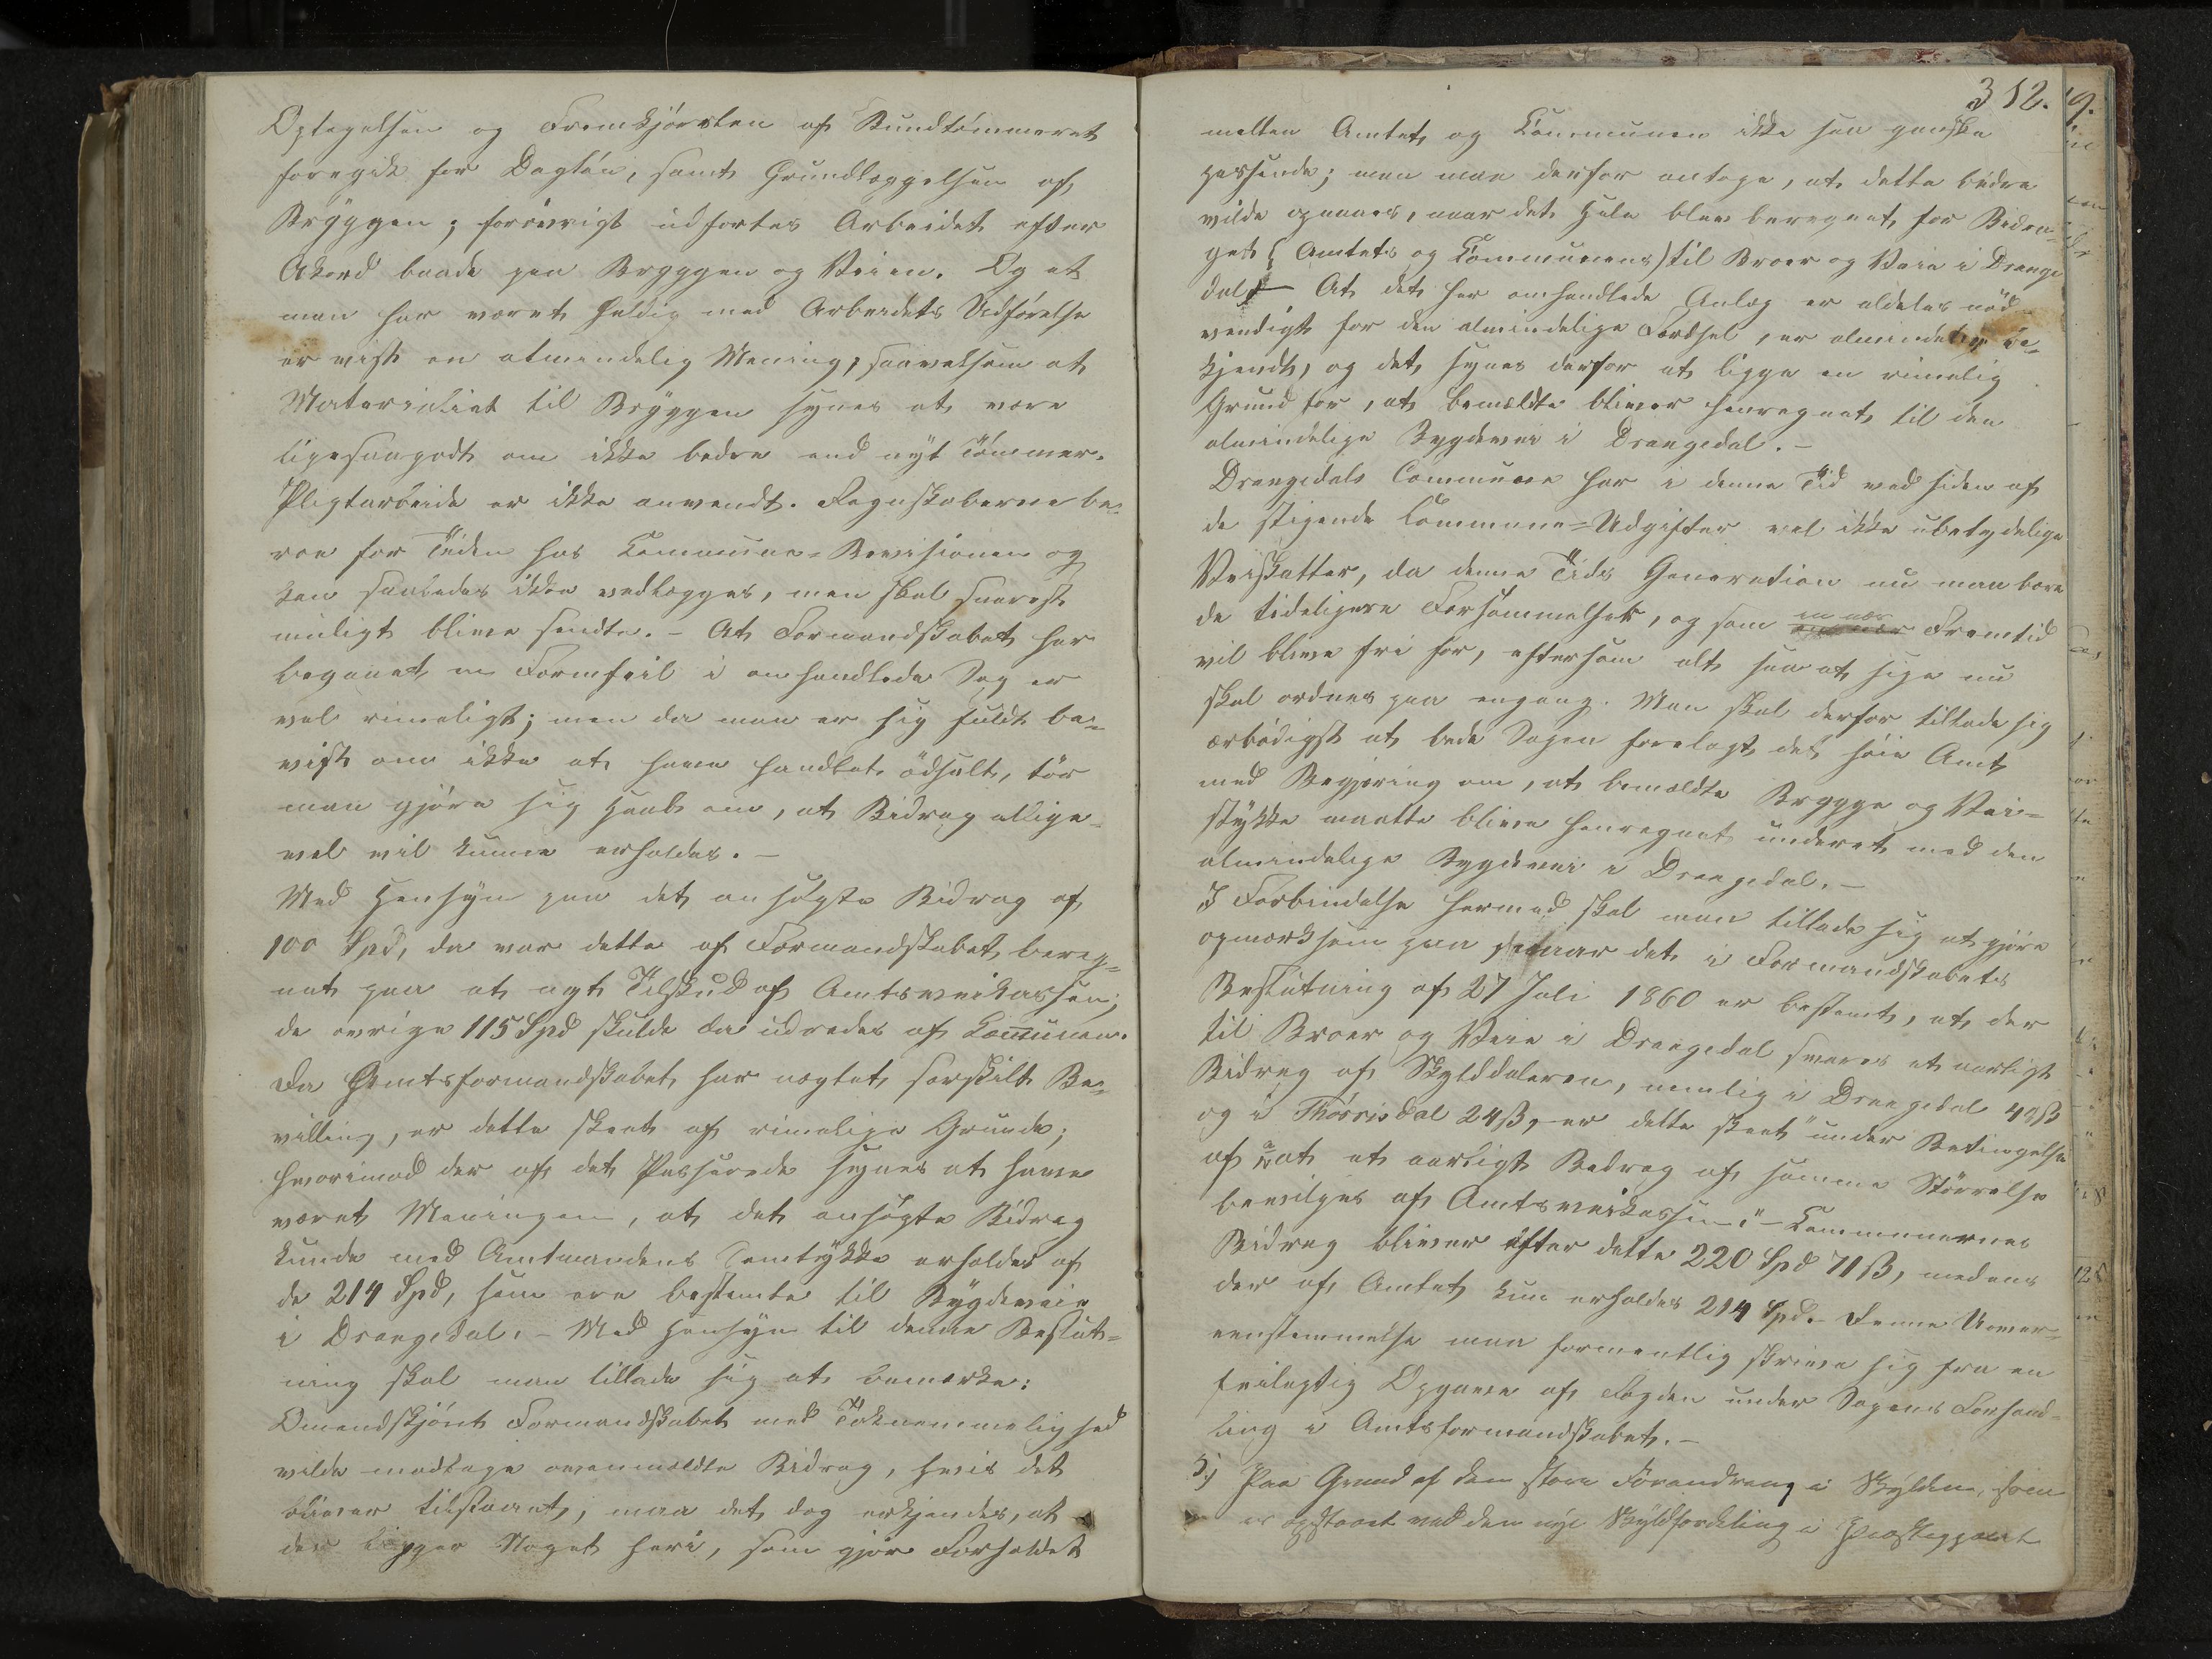 Optagelsen og Fremkjørslen af Bundtømmeret
foregik for Dagløn, samt Grundlæggelsen af
Bryggen; forøvrigt udførtes Arbeidet efter
Akord baade paa Bryggen og Veien. Og at
man har været heldig med Arbeidets Udførelse
er vist en almindelig Mening, saavelsom at
Materialiet til Bryggen synes at være
ligesaagodt om ikke bedre end nyt Tømmer.
Pligtarbeide er ikke anvendt. Regnskaberne be-
roe for Tiden hos Commune-Revisionen og
kan saaledes ikke vedlægges, men skal snarest
muligt blive sendte. – At Formandskabet har
begaaet en Formfeil i omhandlede Sag er
vel rimeligt; men da man er sig fuldt be-
vist om ikke at have handlet ødselt, tør
man gjøre sig Haab om, at Bidrag allige-
vel vil kunne erholdes. –
Med Hensyn paa det ansøgte Bidrag af
100 Spd, da var dette af Formandskabet bereg-
net paa at ægt Tilskud af Amtsveikassen;
de øvrige 115 Spd skulde da udredes af Communen.
Da Amtsformandskabet har nægtet særskilt Be-
villing, er dette skeet af rimelige Grunde;
hvorimod der af det Passerede synes at have
været Meningen, at det ansøgte Bidrag
kunde med Amtmandens Samtykke erholdes af
de 214 Spd, som ere bestemte til Bygdeveie
i Drangedal. – Med Hensyn til denne Beslut-
ning skal man tillade sig at bemærke:
Omendskjønt Formandskabet med Taknemmelighed
vilde modtage ovenmeldte Bidrag, hvis det
bliver tilstaaet, maa det dog erkjendes, at
der ligger Noget heri, som gjør Forholdet
312.
mellem Amtet og Communen ikke saa ganske
passende; man maa derfor antage, at dette bedre
vilde opnaaes, naar det Hele blev beregnet for Bidra-
get (Amtets og Communens) til Broer og Veie i Drange
dal – At det her omhandlede Anlæg er aldeles nød-
vendigt for den almindelige Færdsel, er almindelig be-
kjendt, og det synes derfor at ligge en rimelig
Grund for, at bemeldte bliver henregnet til den
almindelige Bygdevei i Drangedal. –
Drangedals Commune har i denne Tid ved siden af
de stigende Commune-Udgifter vel ikke ubetydelige
Veiskatter, da denne Tids Generation nu maa bære
de tidligere Forsømmelser, og som en nær Fremtid
vil blive fri for, eftersom alt saa at sige nu
skal ordnes paa engang. Man skal derfor tillade sig
ærbødigst at bede Sagen forelagt det høie Amt
med Begjæring om, at bemældte Brygge og Vei-
stykke maatte blive henregnet underet med den
almindelige Bygdevei i Drangedal. –
I Forbindelse hermed skal man tillade sig at gjøre
opmærksom paa, naar det i Formandskabets
Beslutning af 27 Juli 1860 er bestemt, at der
til Broer og Veie i Drangedal svares et aarligt
Bidrag af Skylddaleren, nemlig i Drangedal 48ß
og i Thørrisdal 24ß, – er dette skeet "under Betingelse
af at et aarligt Bidrag af samme Størrelse
bevilges af Amtsveikassen." – Communernes
Bidrag bliver efter dette 220 Spd 71ß, medens
der af Amtet kun erholdes 214 Spd. – Denne Uover-
eenstemmelse maa formentlig skrive sig fra en
feilagtig Opgave af Fogden under Sagens Forhand-
ling i Amtsformandskabet. –
5.) Paa Grund af den store Forandring i Skylden, som
er opstaaet ved den nye Skyldfordeling i Præstegjeldet